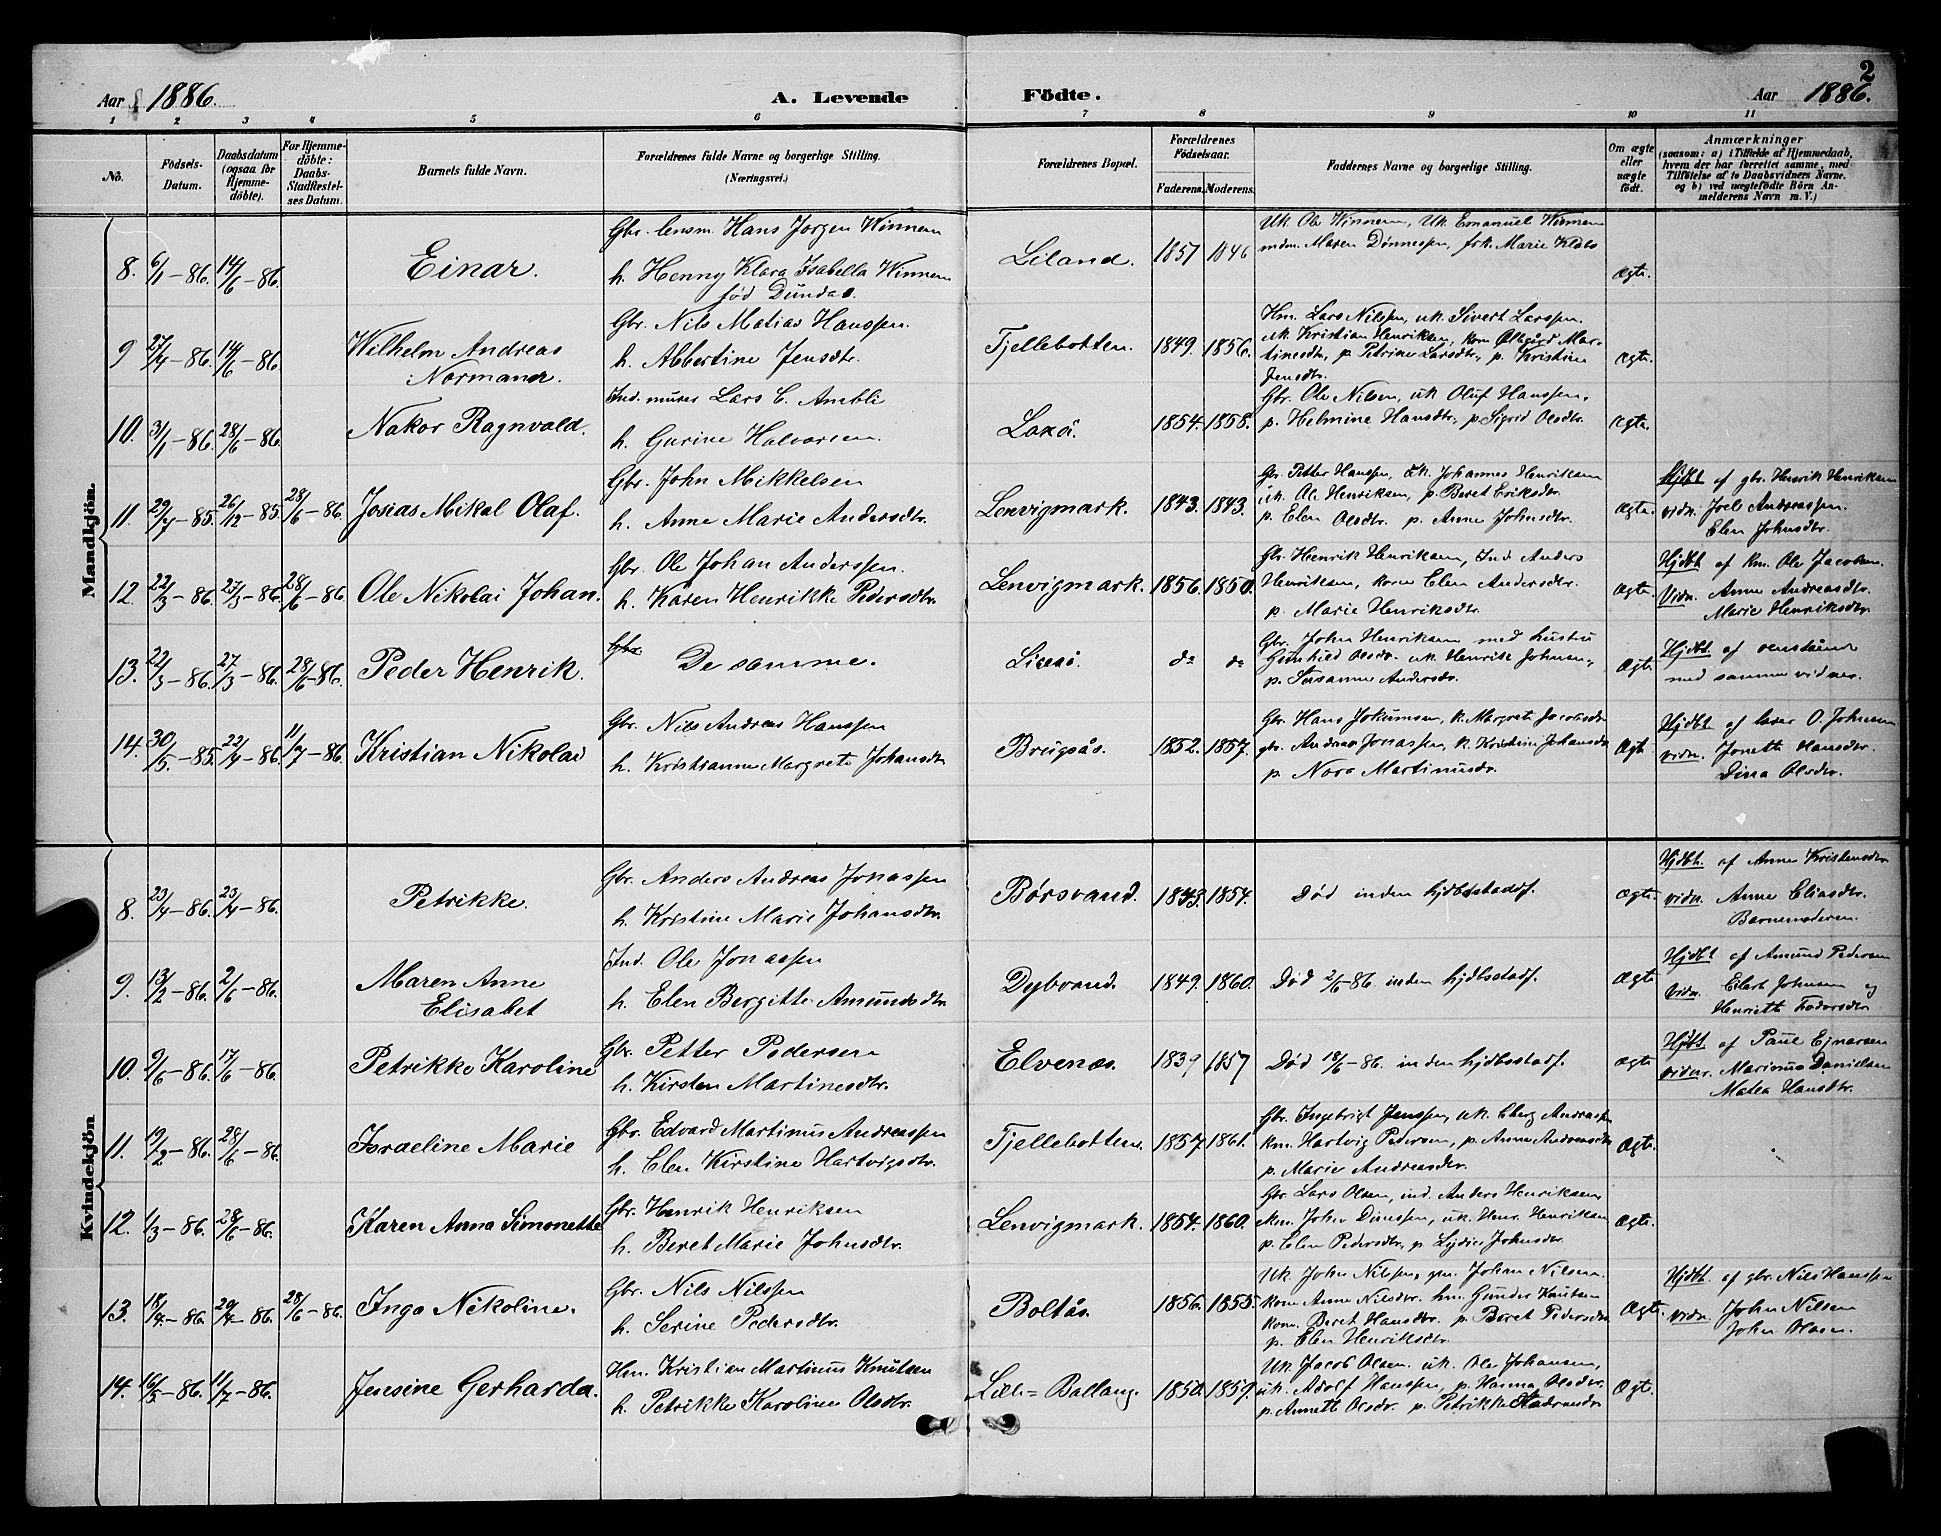 2
Aar 1886.
A. Levende Födte.
Aar 1886.
1 2 3 4 5 6 7 8 9 10 11
No.
Födsels-Datum.
Daabsdatum (ogsaa for Hjemme-döbte).
For Hjemme-döbte: Daabs-Stadfæstel-ses Datum.
Barnets fulde Navn.
Forældrenes fulde Navne og borgerlige Stilling.
(Næringsvei.)
Forældrenes Bopæl.
Forældrenes Födselsaar.
Faderens. Moderens.
Faddernes Navne og borgerlige Stilling.
Om ægte eller uægte födt.
Anmærkninger
(saasom: a) i Tilfælde af Hjemmedaab,
hvem der har forrettet samme, med
Tilföielse af to Daabsvidners Navne,
og b) ved uægtefödte Börn An-
melderens Navn m. V.)
Mandkjön.
8. 6/1-86. 14/6-86. Einar. Gbr. lensm. Hans Jorgen Winnem
h. Henny Klara Isabella Winnem
fød Dundas.
Liland. 1857 1846
Uk. Ole Winnem, Uk. Emanuel Winnem
mdm. Maren Dønnessen, frk. Marie Klæbo
Ægte.
9 27/4-86. 14/6-86. Wilhelm Andreas
Normann.
Gbr. Nils Matias Hanssen.
h. Abbertine Jensdtr.
Tjellebotten. 1849. 1856.
Hm. Lars Nilssen, uk. Sivert Larssen,
uk. Kristian Henriksen, kom Mar-
tinesdtr, p. Petrine Larsdtr, p. Kristine
Jensdtr.
Ægte.
10. 3/1-86. 28/6-86. Nakor Ragnvald.
Ind. murer Lars C. Ambli
h. Gurine Halvorsen.
Laxå. 1854. 1858.
Gbr. Ole Nilsen, uk Oluf Hanssen,
p. Helmine Hansdtr, p. Sigrid Olsdtr.
Ægte.
11. 29/7-85. 26/12-85. 28/6-86. Josias Mikal Olaf.
Gbr. John Mikkelsen
h. Anne Marie Andersdtr.
Lenvigmark. 1843. 1843.
Gbr. Petter Hanssen, uk. Johannes Henriksen
uk. Ole Henriksen, p. Beret Eriksdtr.
p. Elen Olsdtr. p. Anne Johnsdtr.
Ægte.
Hjdbt. af gbr. Henrik Henriksen
vidn. Joel Andreassen.
Elen Johnsdtr.
12. 22/3-86. 27/3-86. 28/6-86. Ole Nikolai Johan.
Gbr. Ole Johan Anderssen.
h. Karen Henrikke Pedersdtr.
Lenvigmark. 1856. 1850.
Gbr. Henrik Henriksen, Ind. Anders
Henriksen, kone Elen Andersdtr.
p. Marie Henriksdtr.
Ægte.
Hjdbt af km. Ole Jacobsen.
Vidn. Anne Andreasdtr.
Marie Henriksdtr.
13. 22/3-86. 27/3-86. 28/6-86. Peder Henrik.
Gbr De samme.
do do
Gbr. John Henriksen med hustru
Gunhild Olsdtr. uk. Henrik Johnsen,
p. Susanne Andersdtr.
Ægte
Hjdbt. af ovenstående
med samme vidner.
14. 30/5-85. 22/4-86. 11/7-86. Kristian Nikolai
Gbr. Nils Andreas Hanssen
h. Kristianne Margrete Johansdtr
Brugsås. 1852. 1857.
Gbr. Hans Jokumsen, k. Margrete Jacobsdtr
gbr. Andreas Jonassen, k. Kristine Johansdtr
p. Nora Martinusdtr.
Ægte
Hjdbt. af lærer O. Johnsen
vidn. Jonette Hansdtr.
Dina Olsdtr.
Kvindekjön
8. 23/4-86. 23/4-86. Petrikke.
Gbr. Anders Andreas Jonassen
h. Kristine Marie Johansdtr.
Børsvand. 1843. 1854.
Død inden hjdbsstadf.
Ægte.
Hjdbt. af Anne Kristensdtr
vidn. Anne Eliasdtr.
Barnemoderen.
9. 13/2-86. 2/6-86. Maren Anne
Elisabet
Ind. Ole Jonassen
h. Elen Bergitte Amundsdtr
Dybvand. 1849. 1860.
Død 2/6-86. inden hjdbsstadf.
Ægte
Hjdbt af Amund Pedersen
vidn. Eilert Johnsen og
Henriette Fedorsdtr
10. 9/6-86. 17/6-86. Petrikke Karoline
Gbr. Petter Pedersen
h. Kirsten Martinesdtr.
Elvenæs. 1839 1857
Død 18/6-86. inden hjdbsstadf.
Ægte
Hjdbt. af Paul Ejnarsen
vidner. Marianna Danielsen
Matea Hansdtr.
11. 19/2-86. 28/6-86. Israeline Marie
Gbr. Edvard Martinus Andreassen
h. Elen Kirstine Hartvigsdtr.
Tjellebotten. 1857. 1861.
Gbr. Ingebrigt Jenssen, uk. Eberg Andreassen
km. Hartvig Pedersen, p. Anne Andreasdtr
p. Marie Andreasdtr.
Ægte.
12. 1/3-86. 28/6-86. Karen Anna Simonette
Gbr. Henrik Henriksen
h. Beret Marie Johnsdtr.
Lenvigmark. 1854. 1860.
Gbr. Lars Olsen, ind. Anders Henriksen,
km. John Dinessen, uk. Henr. Henriksen
p. Elen Pedersdtr, p. Lydia Johnsdtr.
Ægte.
13. 18/4-86. 29/4-86. 28/6-86. Inga Nikoline.
Gbr. Nils Nilssen
h. Serine Pedersdtr.
Boltås. 1856. 1855.
Uk. John Nilssen, gm. Johan Nilsen.
kom Anne Nilsdtr. hm. Gunder Knutsen
kom. Beret Hansdtr. p. Beret Pedersdtr
p. Elen Henriksdtr.
Ægte.
Hjdbt. af gbr. Nils Hanssen
vidn. John Nilsen
John Olsen.
14. 16/5-86. 11/7-86. Jensine Gerharda.
Hm. Kristian Martinus Knutsen
h. Petrikke Karoline Olsdtr.
Lille-Ballang. 1850. 1859.
Uk. Jacob Olsen. uk. Ole Johansen,
uk. Adolf Hanssen, p. Hanna Olsdtr.
p. Annette Olsdtr. p. Petrikke
Ægte.